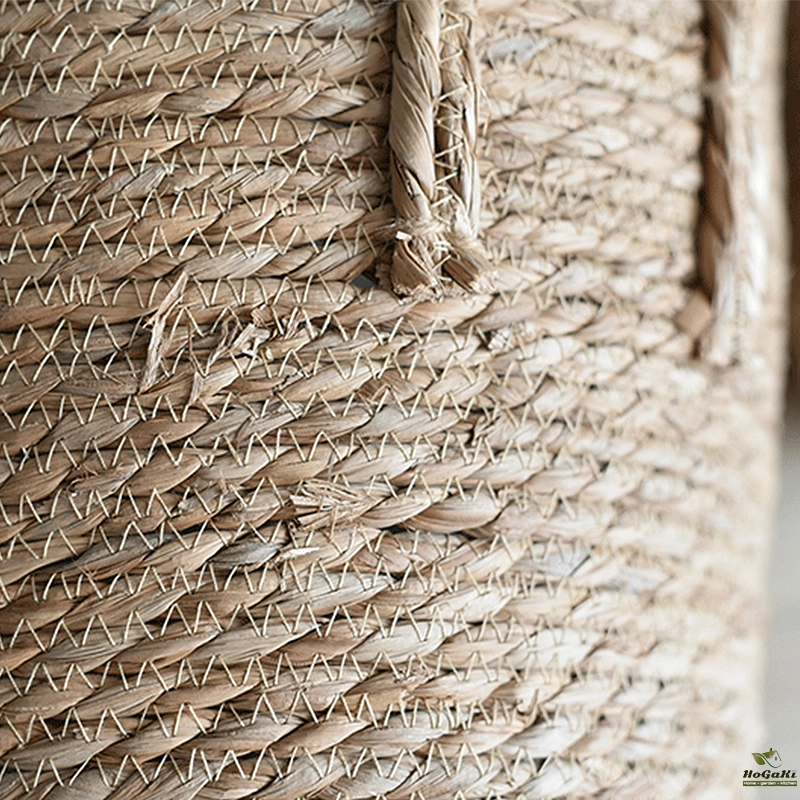 HoGaKi
Home - garden - kitchen